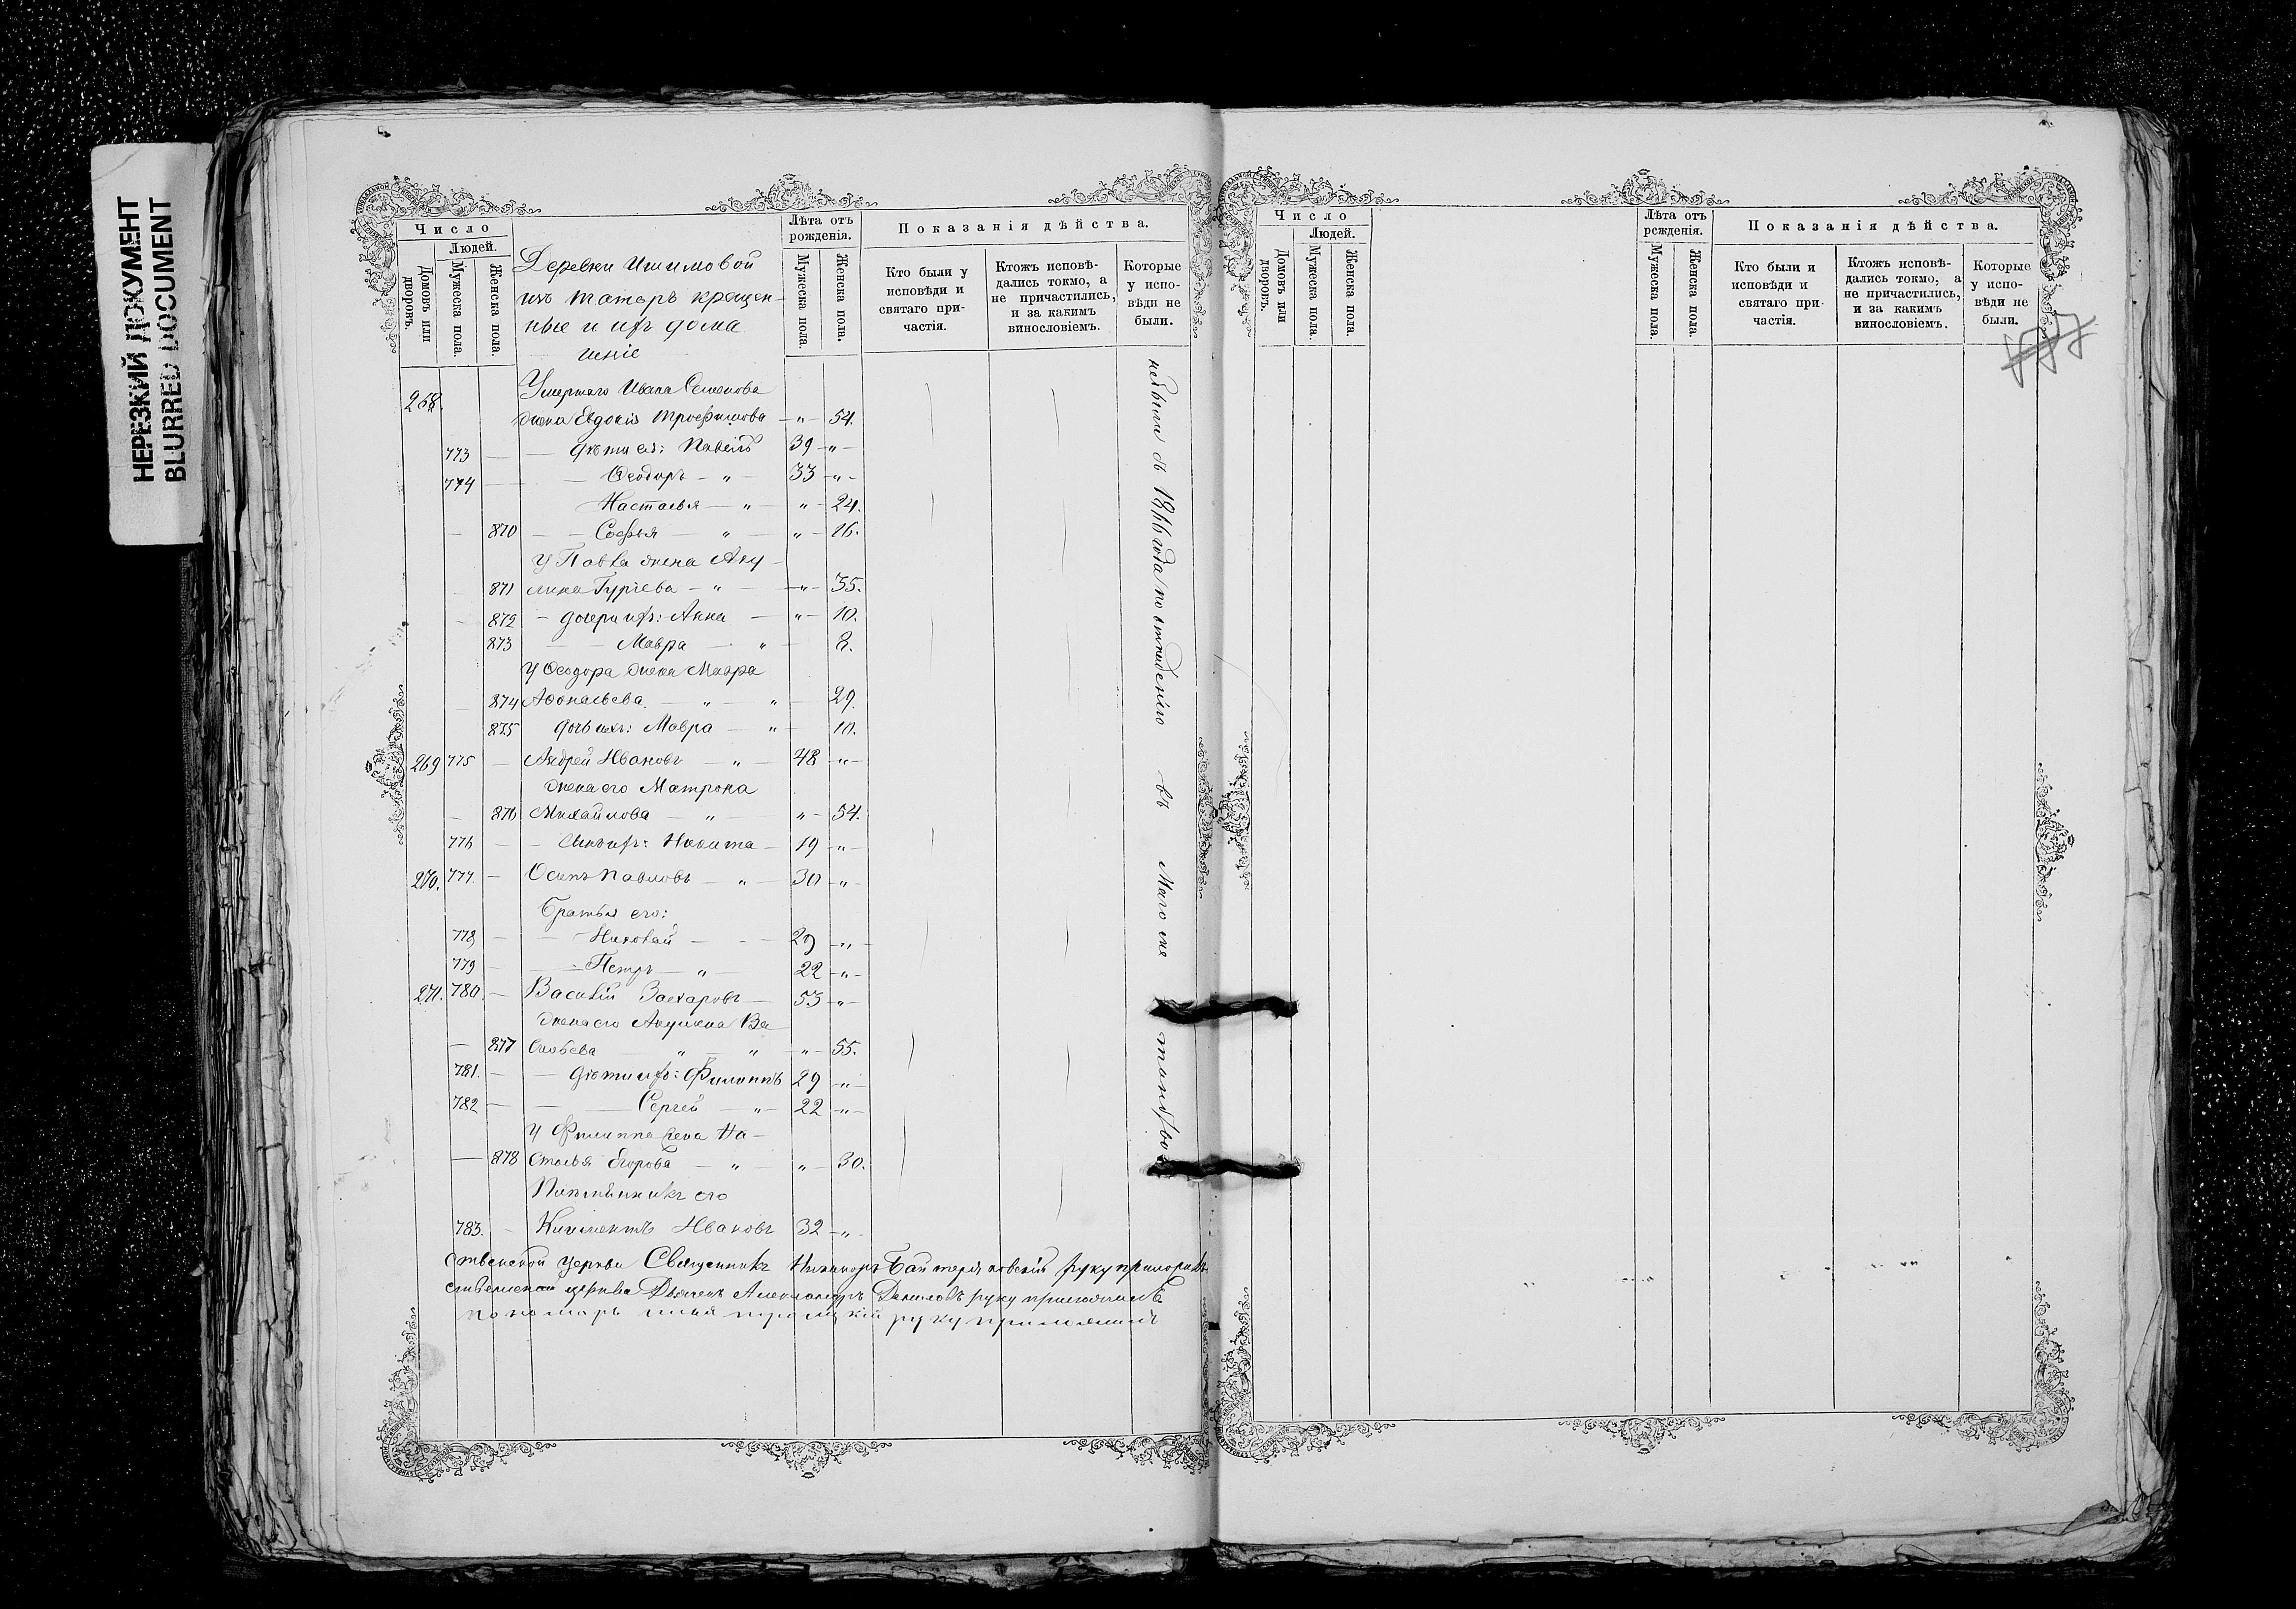 НЕРЕЗКИЙ ДОКУМЕНТ
BLURRED DOCUMENT
Число
Людей.
Домовъ или дворовъ.
Мужеска пола.
Женска пола.
Деревни Ишимовой
изъ татаръ крещен-
ные и ихъ дома
шніе
Лѣта отъ рожденія.
Мужеска пола.
Женска пола.
Показанія дѣйства.
Кто были у исповѣди и святаго при-частія.
Ктожъ исповѣ-дались токмо, а не причастились, и за какимъ винословіемъ.
Которые у испо-вѣди не были.
268. Умершаго Ивана Семенова
жена Евдокія Трофимова — „ — 54.
773 — дѣти ея: Павелъ 39 — „ —
774 — Ѳеодоръ — „ — 33 — „ —
Настасья — „ — „ — 24.
— 870 — Софья — „ — „ — 16.
У Павла жена Аку-
— 871 лина Гурьева — „ — — „ — 35.
— 872 — дочери ихъ: Анна — „ — 10.
873 — Мавра — „ — 8.
У Ѳеодора жена Мавра
— 874 Афонасьева — „ — „ — 29.
875 дочь ихъ: Мавра — „ — 10.
269 775 — Андрей Ивановъ — „ — 48 — „ —
жена его Матрона
— 876 Михайлова — „ — „ — 54.
776 — Сынъ ихъ: Никита — 19 — „ —
270. 777. — Осипъ Павловъ — „ — 30 — „ —
Братья его:
778 — Николай — 29 — „ —
779 — Петръ — „ — 22 — „ —
271. 780 — Василій Захаровъ — 53 — „ —
жена его Акулина Ва
— 877 сильева — „ — „ — „ — 55.
781. — дѣти ихъ: Филиппъ 29 — „ —
782 — Сергей — „ — 22 — „ —
У Филиппа жена На-
— 878 стасья Егорова — „ — „ — 30.
Племянникъ его
783. — Климентъ Ивановъ 32 — „ —
не были съ 1866 года по отпаденію въ Магоме танство
ственской Церкви Священникъ Никаноръ руку приложилъ
ственской церкви Дьячекъ Александръ Даниловъ руку приложилъ
пономарь руку приложилъ
Число
Людей.
Домовъ или дворовъ.
Мужеска пола.
Женска пола.
Лѣта отъ рожденія.
Мужеска пола.
Женска пола.
Показанія дѣйства.
Кто были и исповѣди и святаго при-частія.
Ктожъ исповѣ-дались токмо, а не причастились, и за какимъ винословіемъ.
Которые у испо-вѣди не были.